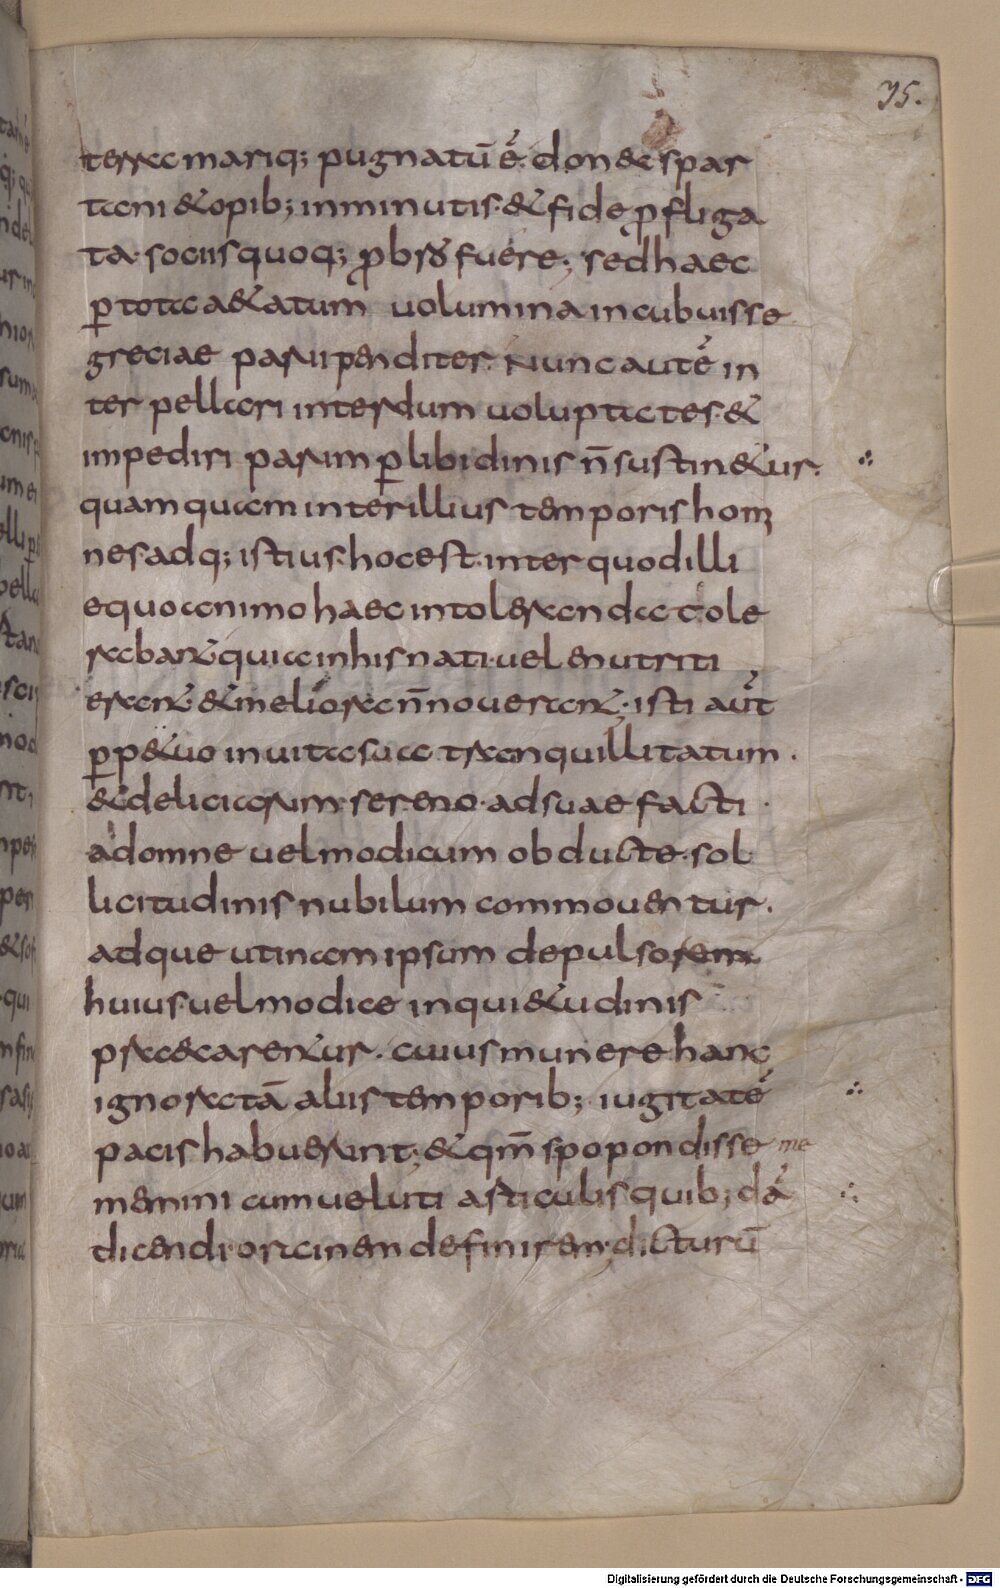 35.
terra mariq; pugnatū ē. donec spar
tani & opib; inminutis. & fide ꝓfliga
ta. sociis quoq; ꝓbro fuere; sed haec
ꝑ tota a&atum uolumina incubuisse
greciae parui penditer. Nunc autē in
ter pellari interdum uoluptates. &
impediri parum ꝑ libidinis n̄ sustin&ur.
quam quam inter illius temporis homi
nes. adq; istius. hoc est. inter quod illi
equo animo haec intoleranda tole
rabant quia in his nati. uel enutriti
erant & meliora n̄ nouerant. isti aūt
ꝑp&uo in uita sua tranquillitatum.
& deliciarum. sereno. ad suae facti
ad omne uel modicum obducte. sol
licitudinis nubilum commouentur.
adque utinam ipsum depulsorem
huius. uel modice inqui&udinis
pracarentur. cuius munere hanc
ignoratā aliis temporib; iugitatē
pacis habuerint; & qm̄ spopondisse me
memini cum ueluti articulis quib; dā
dicendi. orcinem definirem; dicturū
Digitalisierung gefördert durch die Deutsche Forschungsgemeinschaft - DFG